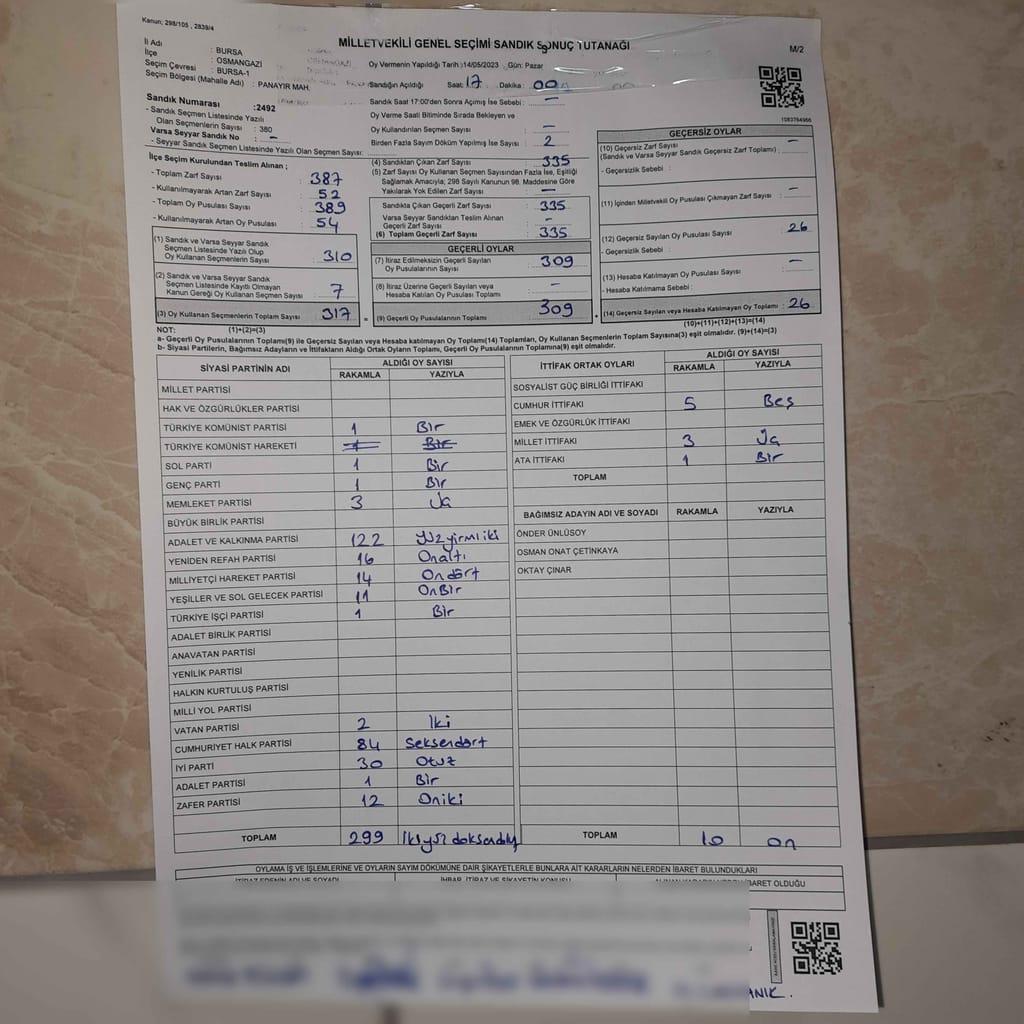 Kanun; 298/105 , 2839/4
MİLLETVEKİLİ GENEL SEÇİMİ SANDIK SONUÇ TUTANAĞI
M/2
İl Adı : BURSA
İlçe : OSMANGAZİ
Seçim Çevresi : BURSA-1
Seçim Bölgesi (Mahalle Adı) : PANAYIR MAH.
Oy Vermenin Yapıldığı Tarih :14/05/2023 Gün: Pazar
Sandığın Açıldığı Saat: 17 Dakika : 00
Sandık Numarası :2492
- Sandık Seçmen Listesinde Yazılı
Olan Seçmenlerin Sayısı : 380
Varsa Seyyar Sandık No : –
- Seyyar Sandık Seçmen Listesinde Yazılı Olan Seçmen Sayısı:
Sandık Saat 17:00'den Sonra Açımış İse Sebebi : –
Oy Verme Saati Bitiminde Sırada Bekleyen ve
Oy Kullandırılan Seçmen Sayısı : –
Birden Fazla Sayım Döküm Yapılmış İse Sayısı : 2
1083764966
İlçe Seçim Kurulundan Teslim Alınan ;
- Toplam Zarf Sayısı : 387
- Kullanılmayarak Artan Zarf Sayısı : 52
- Toplam Oy Pusulası Sayısı : 389
- Kullanılmayarak Artan Oy Pusulası : 54
(1) Sandık ve Varsa Seyyar Sandık
Seçmen Listesinde Yazılı Olup
Oy Kullanan Seçmen Sayısı : 310
(2) Sandık ve Varsa Seyyar Sandık
Seçmen Listesinde Kayıtlı Olmayan
Kanun Gereği Oy Kullanan Seçmen Sayısı : 7
(3) Oy Kullanan Seçmenlerin Toplam Sayısı : 317
(4) Sandıktan Çıkan Zarf Sayısı : 335
(5) Zarf Sayısı Oy Kullanan Seçmen Sayısından Fazla İse, Eşitliği
Sağlamak Amacıyla; 298 Sayılı Kanunun 98. Maddesine Göre
Yakılarak Yok Edilen Zarf Sayısı : –
Sandıkta Çıkan Geçerli Zarf Sayısı : 335
Varsa Seyyar Sandıktan Teslim Alınan
Geçerli Zarf Sayısı : –
(6) Toplam Geçerli Zarf Sayısı : 335
GEÇERLİ OYLAR
(7) İtiraz Edilmeksizin Geçerli Sayılan
Oy Pusulalarının Sayısı : 309
(8) İtiraz Üzerine Geçerli Sayılan veya
Hesaba Katılan Oy Pusulası Toplamı : –
= (9) Geçerli Oy Pusulalarının Toplamı : 309
GEÇERSİZ OYLAR
(10) Geçersiz Zarf Sayısı : –
(Sandık ve Varsa Seyyar Sandık Geçersiz Zarf Toplamı)
- Geçersizlik Sebebi :
(11) İçinden Milletvekili Oy Pusulası Çıkmayan Zarf Sayısı : –
(12) Geçersiz Sayılan Oy Pusulası Sayısı : 26
- Geçersizlik Sebebi :
(13) Hesaba Katılmayan Oy Pusulası Sayısı : –
- Hesaba Katılmama Sebebi :
+ (14) Geçersiz Sayılan veya Hesaba Katılmayan Oy Toplamı : 26
NOT: (1)+(2)=(3)
(10)+(11)+(12)+(13)=(14)
a- Geçerli Oy Pusulalarının Toplamı(9) ile Geçersiz Sayılan veya Hesaba katılmayan Oy Toplamı(14) Toplamları, Oy Kullanan Seçmenlerin Toplam Sayısına(3) eşit olmalıdır. (9)+(14)=(3)
b- Siyasi Partilerin, Bağımsız Adayların ve İttifakların Aldığı Ortak Oyların Toplamı, Geçerli Oy Pusulalarının Toplamına(9) eşit olmalıdır.
SİYASİ PARTİNİN ADI ALDIĞI OY SAYISI
RAKAMLA YAZIYLA
MİLLET PARTİSİ
HAK VE ÖZGÜRLÜKLER PARTİSİ
TÜRKİYE KOMÜNİST PARTİSİ 1 Bir
TÜRKİYE KOMÜNİST HAREKETİ 1 Bir
SOL PARTİ 1 Bir
GENÇ PARTİ 1 Bir
MEMLEKET PARTİSİ 3 Üç
BÜYÜK BİRLİK PARTİSİ
ADALET VE KALKINMA PARTİSİ 122 Yüzyirmiiki
YENİDEN REFAH PARTİSİ 16 Onaltı
MİLLİYETÇİ HAREKET PARTİSİ 14 Ondört
YEŞİLLER VE SOL GELECEK PARTİSİ 11 OnBir
TÜRKİYE İŞÇİ PARTİSİ 1 Bir
ADALET BİRLİK PARTİSİ
ANAVATAN PARTİSİ
YENİLİK PARTİSİ
HALKIN KURTULUŞ PARTİSİ
MİLLİ YOL PARTİSİ
VATAN PARTİSİ 2 İki
CUMHURİYET HALK PARTİSİ 84 Seksendört
İYİ PARTİ 30 Otuz
ADALET PARTİSİ 1 Bir
ZAFER PARTİSİ 12 Oniki
TOPLAM 299
İTTİFAK ORTAK OYLARI ALDIĞI OY SAYISI
RAKAMLA YAZIYLA
SOSYALİST GÜÇ BİRLİĞİ İTTİFAKI
CUMHUR İTTİFAKI 5 Beş
EMEK VE ÖZGÜRLÜK İTTİFAKI
MİLLET İTTİFAKI 3 Üç
ATA İTTİFAKI 1 Bir
TOPLAM
BAĞIMSIZ ADAYIN ADI VE SOYADI RAKAMLA YAZIYLA
ÖNDER ÜNLÜSOY
OSMAN ONAT ÇETİNKAYA
OKTAY ÇINAR
TOPLAM 10 on
OYLAMA İŞ VE İŞLEMLERİNE VE OYLARIN SAYIM DÖKÜMÜNE DAİR ŞİKAYETLERLE BUNLARA AİT KARARLARIN NELERDEN İBARET BULUNDUKLARI
İTİRAZ EDENİN ADI VE SOYADI İHBAR, İTİRAZ VE ŞİKAYETİN KONUSU İBARET OLDUĞU